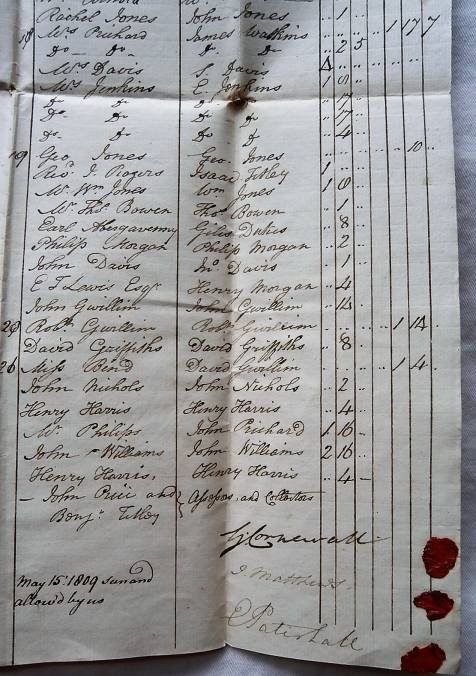 Rachel Jones John Jones .. 1 ..
18 Mrs Prichard James Watkins .. .. .. 1 17 7
do - do - do do .. 2 5
Mrs Davis S. Davis
Mrs Jenkins E. Jenkins
do do do do
do do do do
do. do do - do .. 4 ..
19 Geo. Jones Geo. Jones .. .. .. .. 10 ..
Revd. J. Rogers Isaac Titley 1 .. ..
Mr. Wm Jones Wm Jones
Mr Thos. Bowen Thos Bowen .. 1 ..
Earl Abergavenny Giles .. 8 ..
Philip Morgan Philip Morgan .. 2 ..
John Davis Jno. Davis .. 1 ..
E T Lewis Esqr. Henry Morgan .. 4 ..
John Gwillim John Gwillim .. 14 ..
Robt. Gwillim Robt. Gwillim .. .. .. 1 14 ..
David Griffiths David Griffiths .. 8 ..
26 Miss David Gwillim .. .. .. 1 4 ..
John Nichols John Nichols .. 2 ..
Henry Harris Henry Harris .. 4 ..
Mr Philips John Prichard 1 16 ..
John Williams John Williams 2 16 ..
Henry Harris, Henry Harris .. 4 -
- John and } Assessors, and Collectors
Benjn. Titley
G Cornewall
May 15 1809 seen and
allow'd by us
J. Matthews.